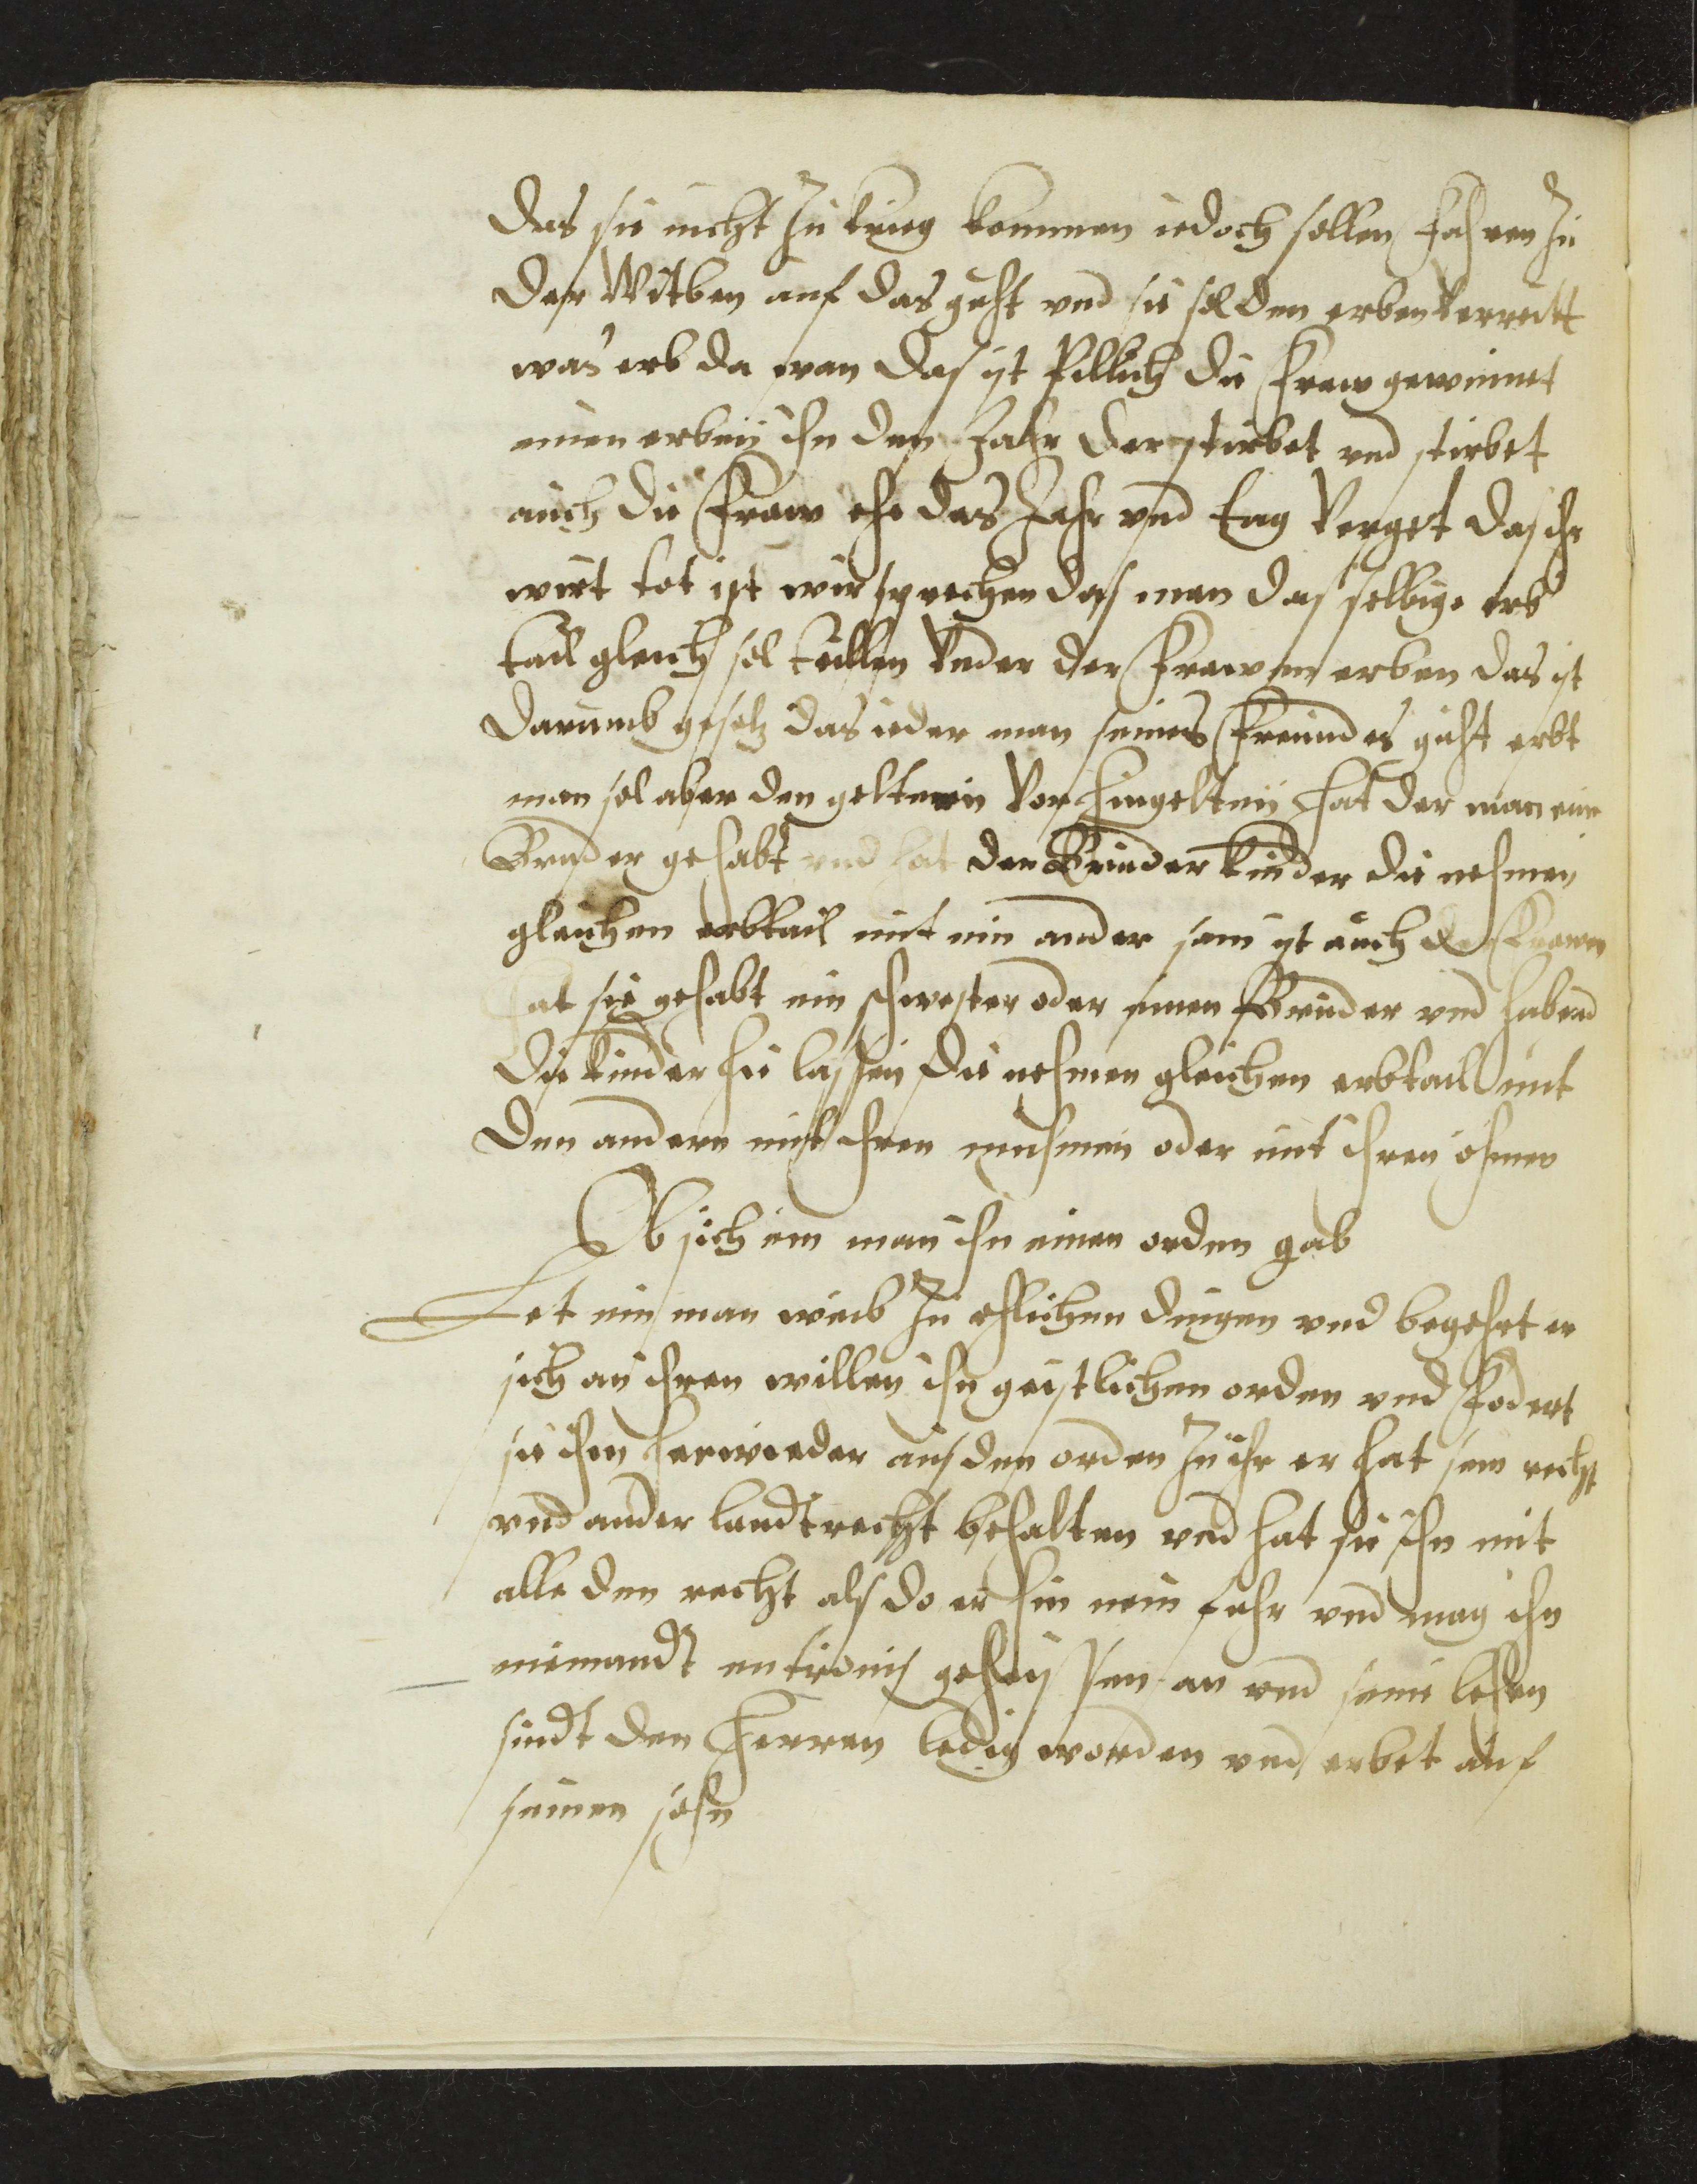 das sie nicht zu krieg kommen iedoch sollen fahren zu
der Witben auf das guht vnd sie sol den erben verrecht
was erb da wan das ist billich die fraw gewinnet
einen erben ihn dem Jahr der stirbet vnd stirbet
auch die fraw ehe das Jahr vnd tag verget das ihr
wirt tot ist wir sprechen das man das selbige erb
tail gleich sol teillen vnder der frawen erben das ist
darumb gesetz das ieder man seines freundes guht erbt
man sol aber den geltern vor hingelten hat der man ein
Bruder gehabt vnd hat der Bruder kinder die nehmen
gleichen erbtail mit ein ander sam ist auch der frawen
hat sie gehabt ein schwester oder einen Bruder vnd habend
die kinder hie lassen die nehmen gleichen erbtail mit
den andern mit ihren muhmen oder mit ihren öhmen
Ob sich ein man ihn einen orden gab
Let ein man weib zu ehlichen dingen vnd begehrt er
sich an ihren willen ihn geistlichen orden vnd fodert
sie ihn herwieder aus dem orden zu ihr er hat sein recht
vnd ander landtrecht behalten vnd hat sie ihn mit
alle dem recht als do er hin nein fuhr vnd mag ihn
niemandt geheissen an vnd seine lehen
sindt den herren ledig worden vnd erbet auf
seinen sohn